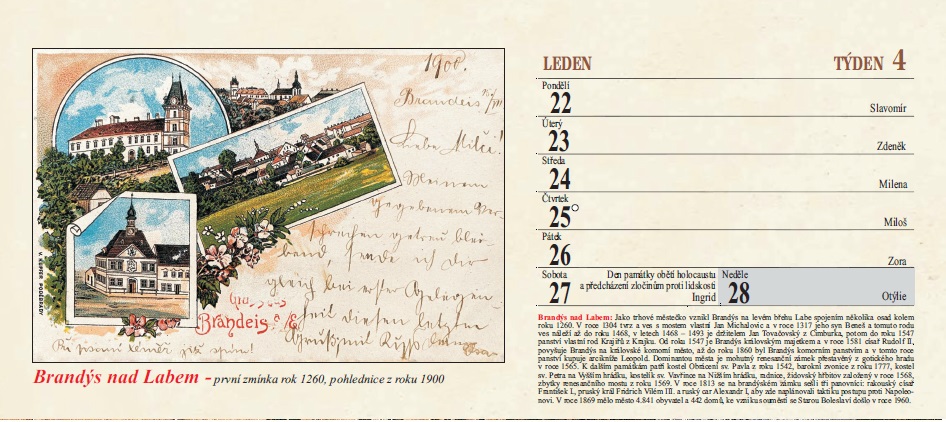 1900.
Brandeis
Liebe Mitzi!
Meinem
gegebenem Ver-
sprechen getreu blei-
bend, sende ich dir
gleich bei erster Gelegen-
heit diesen letzten
Gruss aus
Brandeis a. E.
V. KUPFER PODĚBRADY
Brandýs nad Labem - první zmínka rok 1260, pohlednice z roku 1900
LEDEN TÝDEN 4
Pondělí
22 Slavomír
Úterý
23 Zdeněk
Středa
24 Milena
Čtvrtek
25 Miloš
Pátek
26 Zora
Sobota
27
Den památky obětí holocaustu
a předcházení zločinům proti lidskosti
Ingrid
Neděle
28 Otýlie
Brandýs nad Labem: Jako trhové městečko vznikl Brandýs na levém břehu Labe spojením několika osad kolem
roku 1260. V roce 1304 tvrz a ves s mostem vlastní Jan Michalovic a v roce 1317 jeho syn Beneš a tomuto rodu
ves náleží až do roku 1468, v letech 1468 – 1493 je držitelem Jan Tovačovský z Cimburka, potom do roku 1547
panství vlastní rod Krajířů z Krajku. Od roku 1547 je Brandýs královským majetkem a v roce 1581 císař Rudolf II.
povyšuje Brandýs na královské komorní město, až do roku 1860 byl Brandýs komorním panstvím a v tomto roce
panství kupuje arcikníže Leopold. Dominantou města je mohutný renesanční zámek přestavěný z gotického hradu
v roce 1565. K dalším památkám patří kostel Obrácení sv. Pavla z roku 1542, barokní zvonice z roku 1777, kostel
sv. Petra na Vyšším hrádku, kostelík sv. Vavřince na Nižším hrádku, radnice, židovský hřbitov založený v roce 1568,
zbytky renesančního mostu z roku 1569. V roce 1813 se na brandýském zámku sešli tři panovníci: rakouský císař
František I., pruský král Fridrich Vilém III. a ruský car Alexandr I., aby zde naplánovali taktiku postupu proti Napoleo-
novi. V roce 1869 mělo město 4.841 obyvatel a 442 domů, ke vzniku souměstí se Starou Boleslaví došlo v roce 1960.